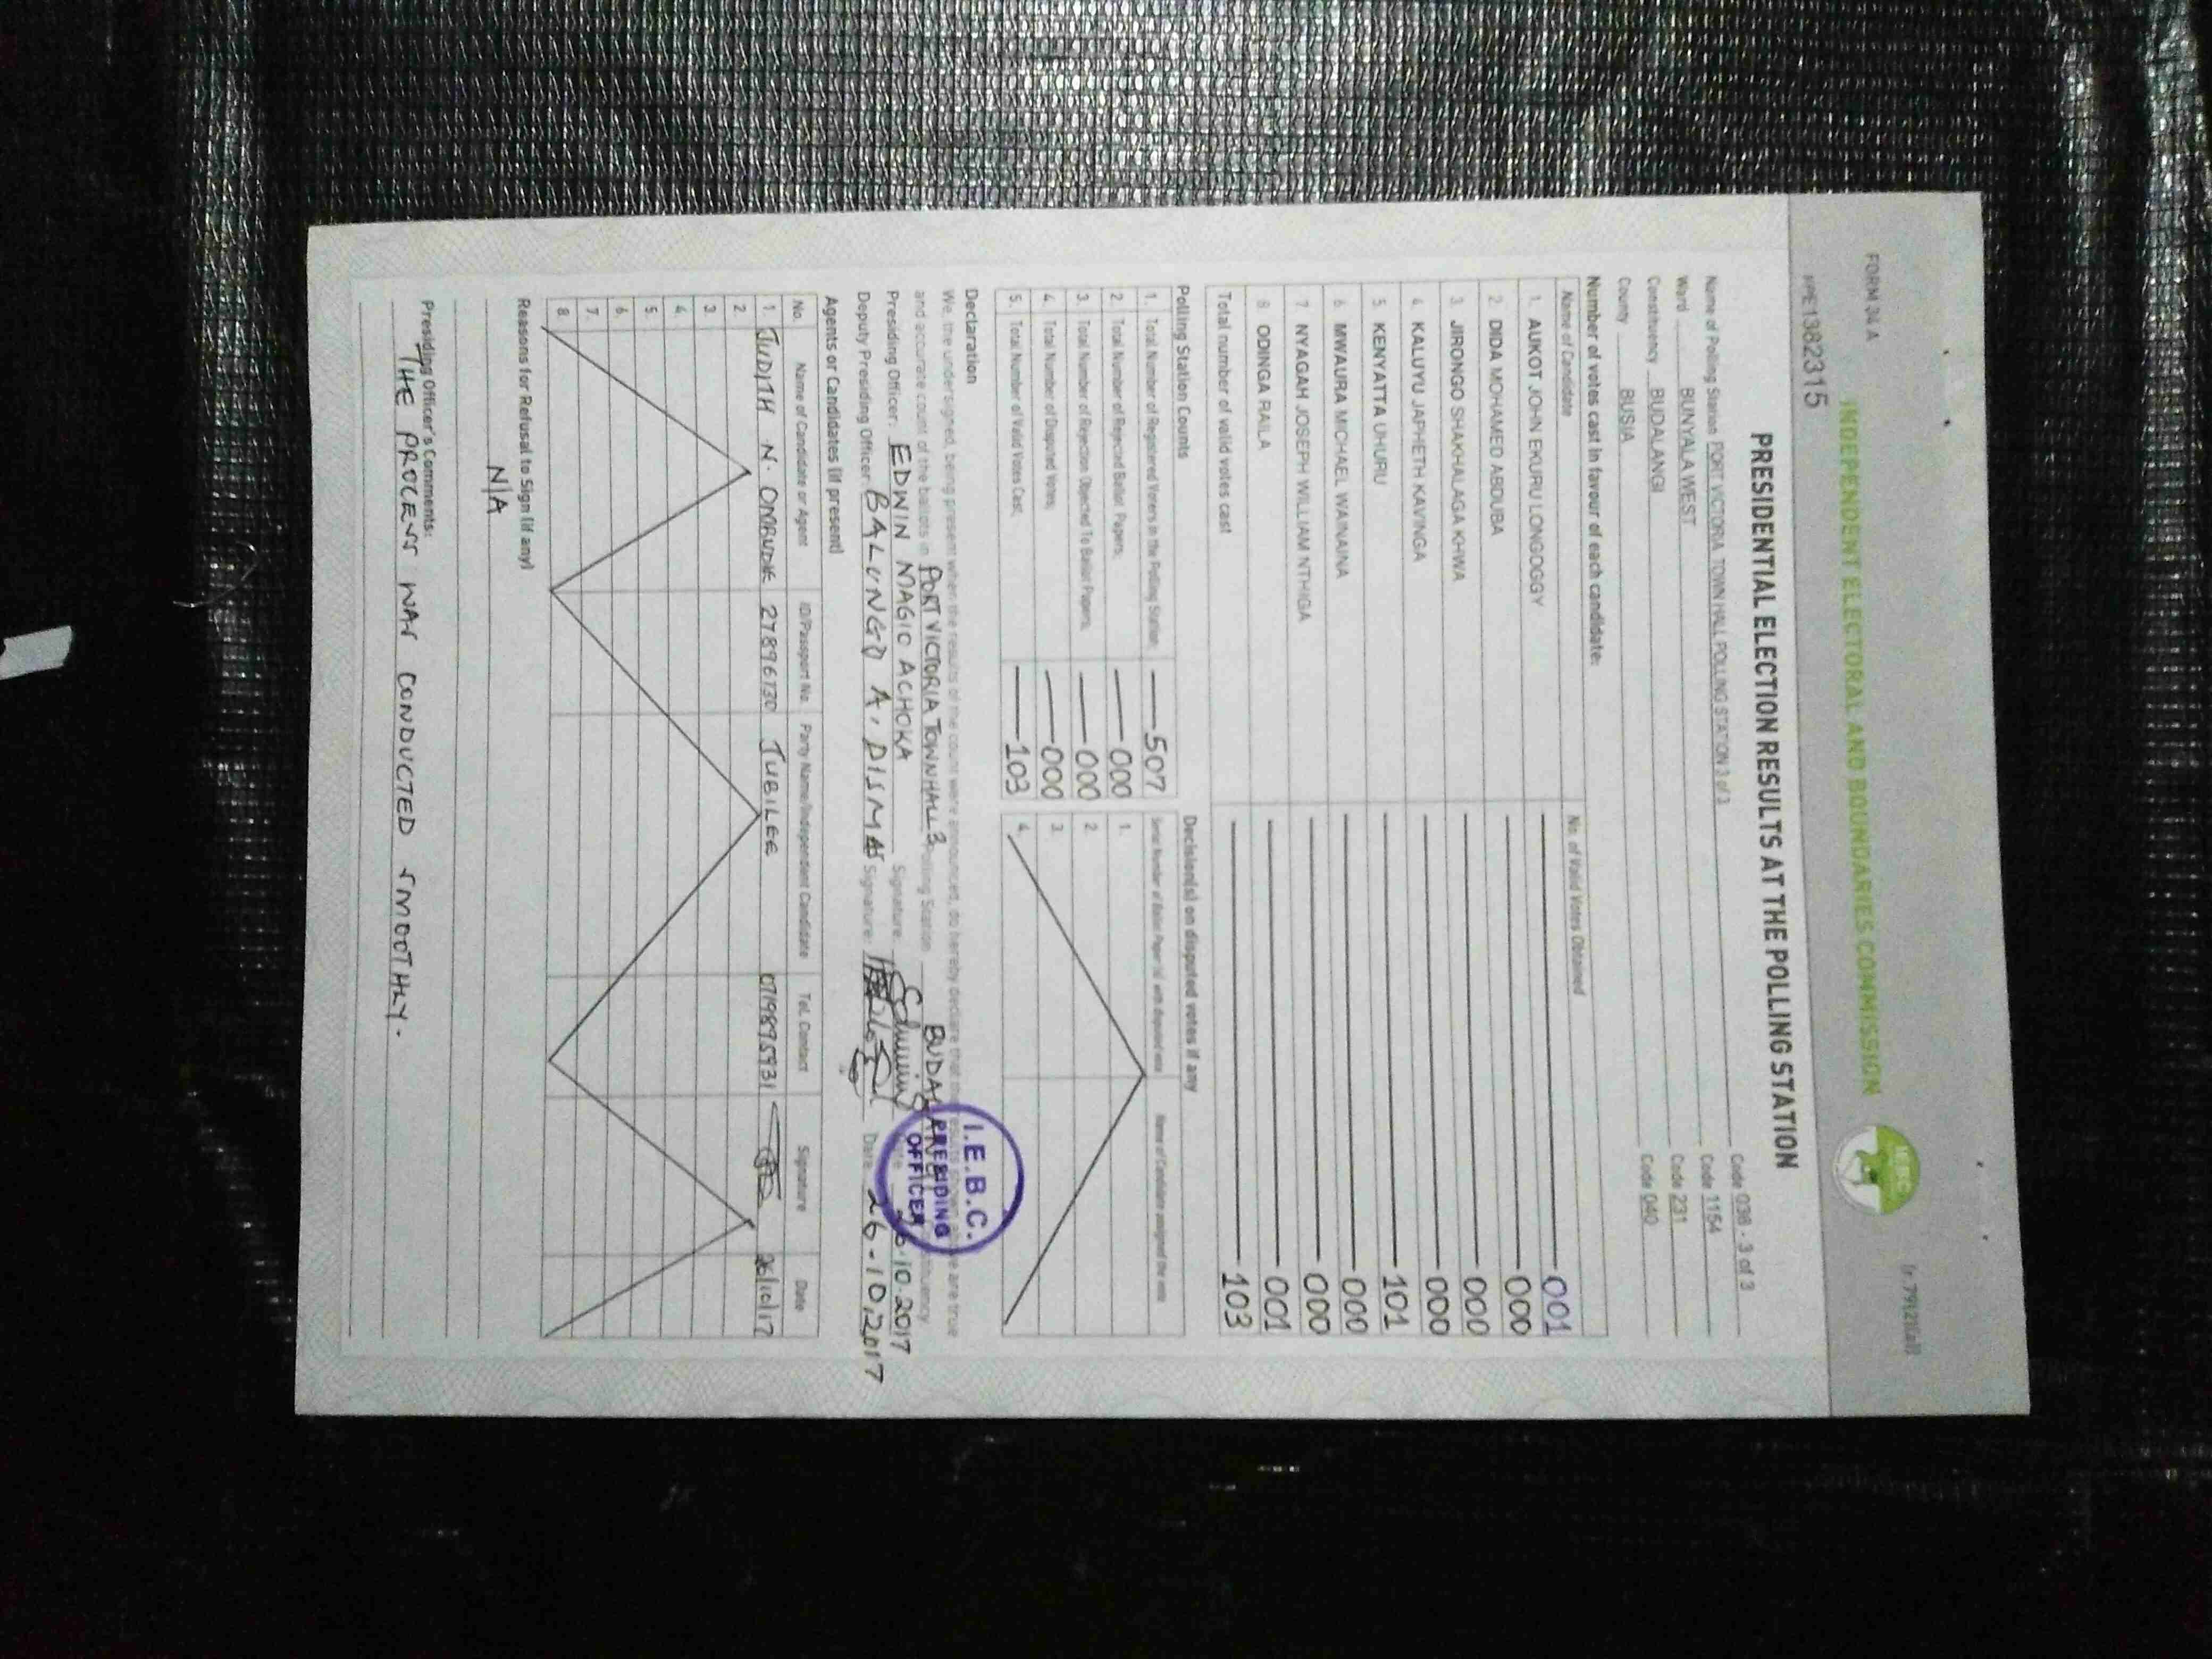 FORM 34 A
INDEPENDENT ELECTORAL AND BOUNDARIES COMMISSION
PRESIDENTIAL ELECTION RESULTS AT THE POLLING STATION
Name of Polling Station PORT VICTORIA TOWN HALL POLLING STATION 3 of 3 Code 036 - 3 of 3
Ward BUNYALA WEST Code 1154
Constituency BUDALANGI Code 231
County BUSIA Code 040
Number of votes cast in favour of each candidate:
Name of Candidate No. of Valid Votes Obtained
1. AUKOT JOHN EKURU LONGOGGY 001
2. DIDA MOHAMED ABDUBA 000
3. JIRONGO SHAKHALAGA KHWA 000
4. KALUYU JAPHETH KAVINGA 000
5. KENYATTA UHURU 101
6. MWAURA MICHAEL WAINAINA 000
7. NYAGAH JOSEPH WILLIAM NTHIGA 000
8. ODINGA RAILA 001
Total number of valid votes cast 103
Polling Station Counts
1. Total Number of Registered Voters in the Polling Station 507
2. Total Number of Rejected Ballot Papers; 000
3. Total Number of Rejection Objected To Ballot Papers; 000
4. Total Number of Disputed Votes; 000
5. Total Number of Valid Votes Cast; 103
Decision(s) on disputed votes if any
1.
2.
3.
4.
Declaration
We, the undersigned, being present when the results of the count were announced, do hereby declare that the results shown above are true
and accurate count of the ballots in PORT VICTORIA TOWNHALL 3 Polling Station
Presiding Officer: EDWIN MAGIO ACHOKA Signature: 26.10.2017
Deputy Presiding Officer: BALUNGO A. DISMAS Signature: Date 26.10.2017
I.E.B.C.
PRESIDING
OFFICER
Agents or Candidates (if present)
No. Name of Candidate or Agent ID/Passport No. Party Name/Independent Candidate Tel. Contact Signature Date
1. JUDITH N. 27896730 JUBILEE 0719895931 26/10/17
2.
3.
4.
5.
6.
7.
8.
Reasons for Refusal to Sign (if any)
N/A
Presiding Officer's Comments:
THE PROCESS WAS CONDUCTED SMOOTHLY.